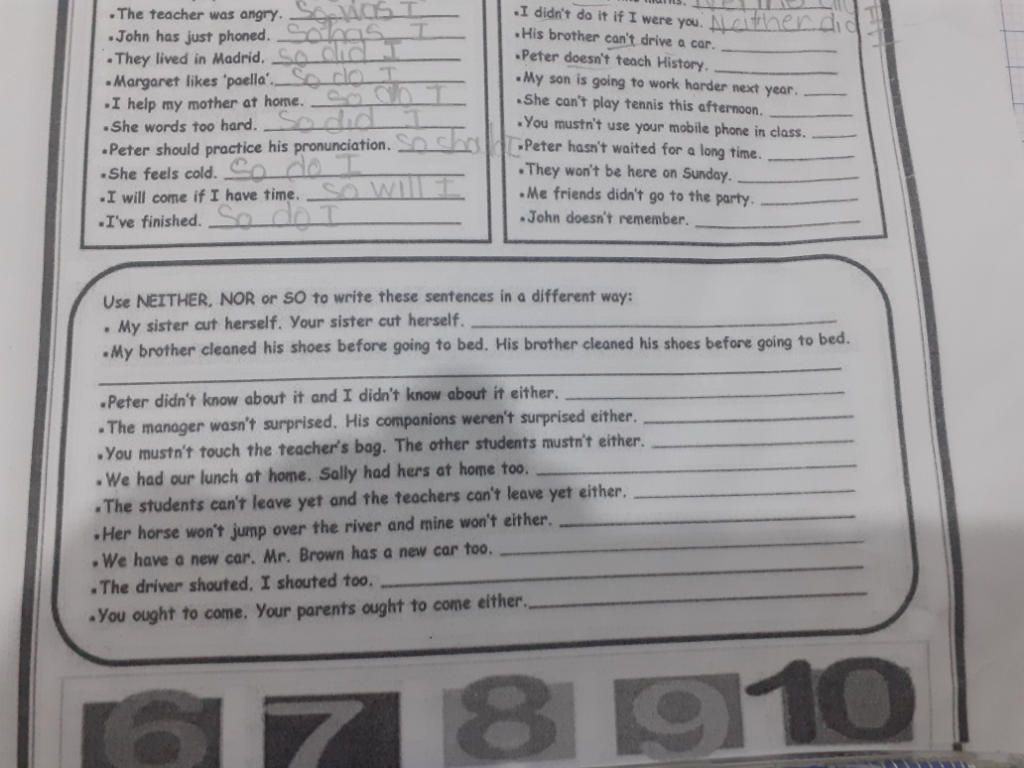 •The teacher was angry. So was I
•John has just phoned. So has I
•They lived in Madrid. So did I
•Margaret likes 'paella'. So do I
•I help my mother at home. So do I
•She words too hard. So did I
•Peter should practice his pronunciation. So shall I
•She feels cold. So do I
•I will come if I have time. So will I
•I've finished. So do I
•I didn't do it if I were you. Neither did I
•His brother can't drive a car.
•Peter doesn't teach History.
•My son is going to work harder next year.
•She can't play tennis this afternoon.
•You mustn't use your mobile phone in class.
•Peter hasn't waited for a long time.
•They won't be here on Sunday.
•Me friends didn't go to the party.
•John doesn't remember.
Use NEITHER, NOR or SO to write these sentences in a different way:
• My sister cut herself. Your sister cut herself.
•My brother cleaned his shoes before going to bed. His brother cleaned his shoes before going to bed.
•Peter didn't know about it and I didn't know about it either.
•The manager wasn't surprised. His companions weren't surprised either.
•You mustn't touch the teacher's bag. The other students mustn't either.
•We had our lunch at home. Sally had hers at home too.
•The students can't leave yet and the teachers can't leave yet either.
•Her horse won't jump over the river and mine won't either.
•We have a new car. Mr. Brown has a new car too.
•The driver shouted. I shouted too.
•You ought to come. Your parents ought to come either.
6 7 8 9 10